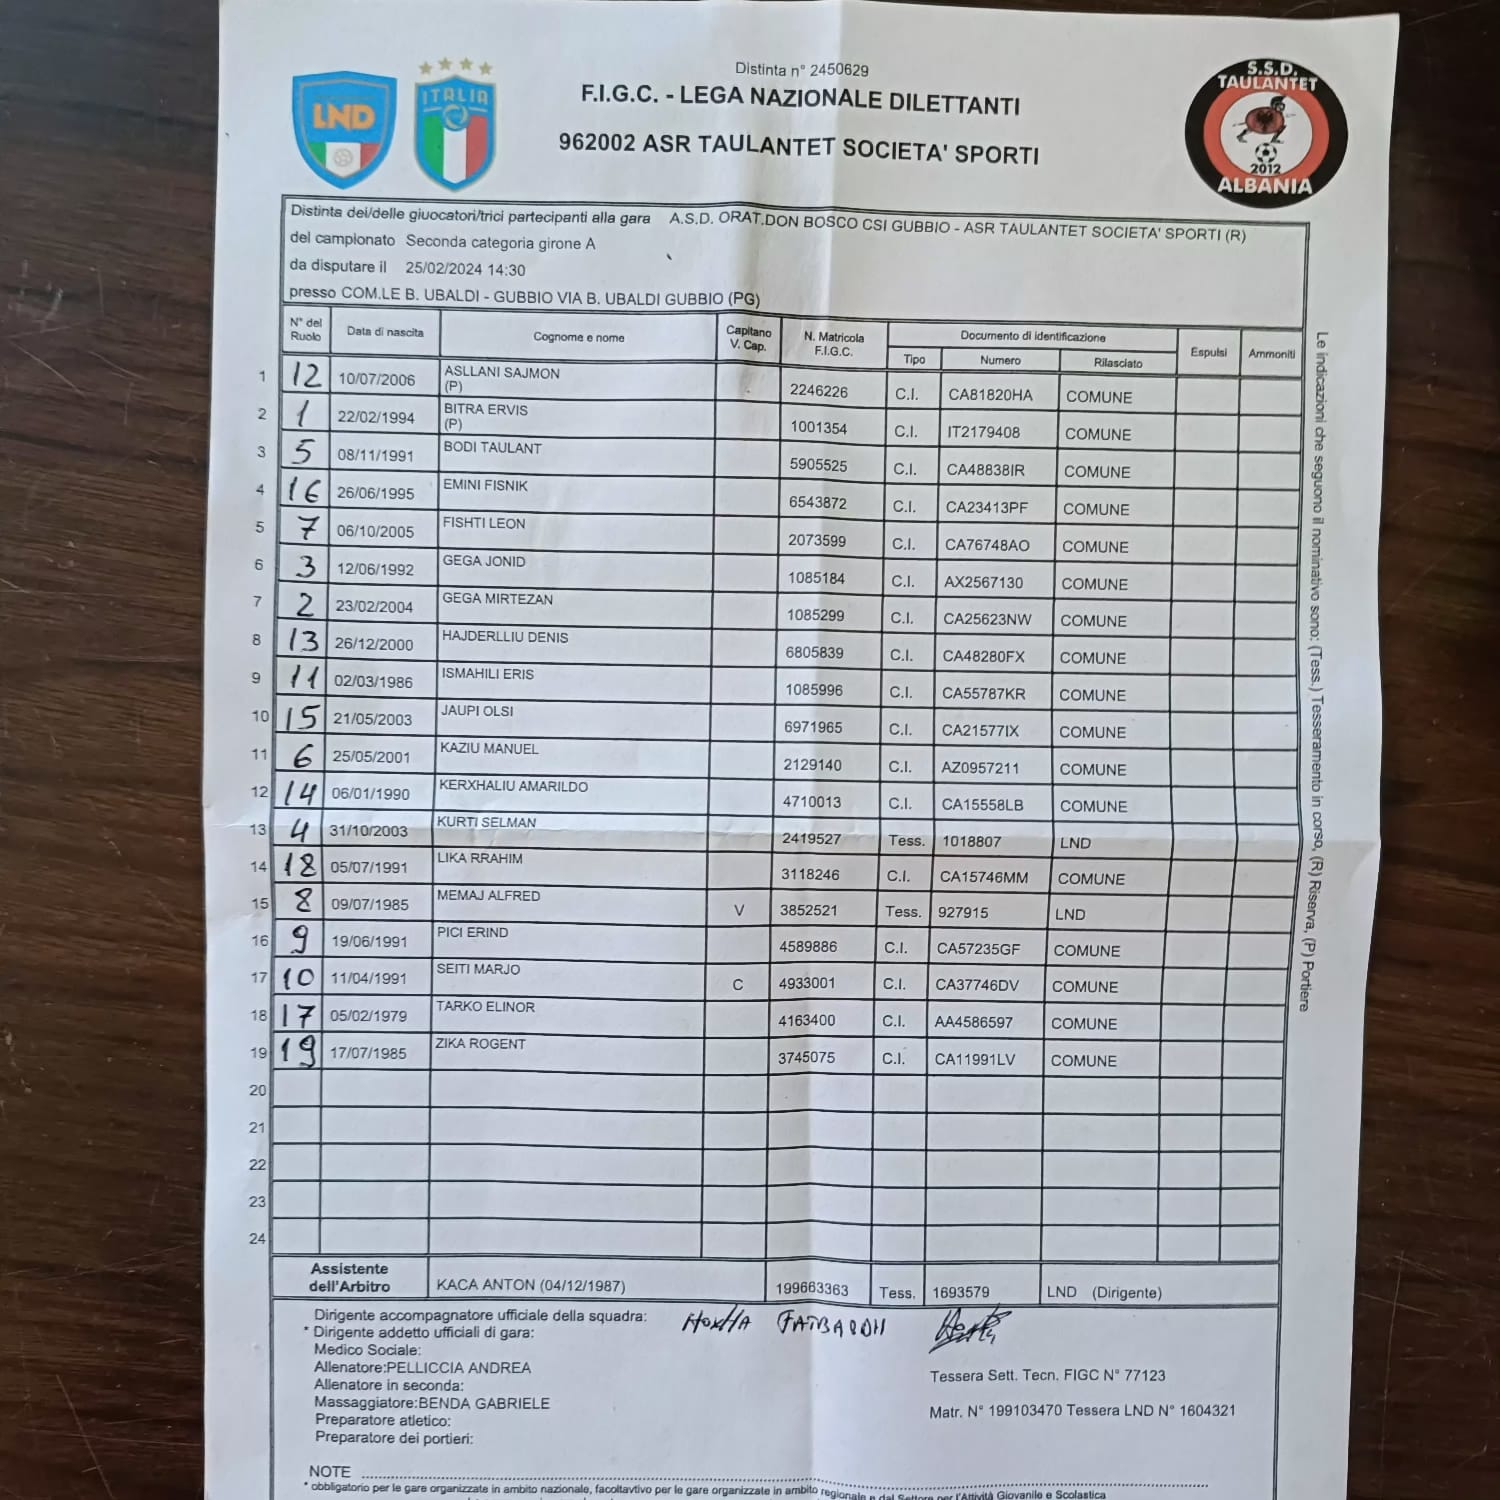 Distinta n° 2450629
F.I.G.C. - LEGA NAZIONALE DILETTANTI
962002 ASR TAULANTET SOCIETA' SPORTI
LND
ITALIA
S.S.D.
TAULANTET
2012
ALBANIA
Distinta dei/delle giuocatori/trici partecipanti alla gara A.S.D. ORAT.DON BOSCO CSI GUBBIO - ASR TAULANTET SOCIETA' SPORTI (R)
del campionato Seconda categoria girone A
da disputare il 25/02/2024 14:30
presso COM.LE B. UBALDI - GUBBIO VIA B. UBALDI GUBBIO (PG)
N° del Ruolo Data di nascita Cognome e nome Capitano V. Cap. N. Matricola F.I.G.C. Documento di identificazione Espulsi Ammoniti
Tipo Numero Rilasciato
1 12 10/07/2006 ASLLANI SAJMON (P) 2246226 C.I. CA81820HA COMUNE
2 1 22/02/1994 BITRA ERVIS (P) 1001354 C.I. IT2179408 COMUNE
3 5 08/11/1991 BODI TAULANT 5905525 C.I. CA48838IR COMUNE
4 16 26/06/1995 EMINI FISNIK 6543872 C.I. CA23413PF COMUNE
5 7 06/10/2005 FISHTI LEON 2073599 C.I. CA76748AO COMUNE
6 3 12/06/1992 GEGA JONID 1085184 C.I. AX2567130 COMUNE
7 2 23/02/2004 GEGA MIRTEZAN 1085299 C.I. CA25623NW COMUNE
8 13 26/12/2000 HAJDERLLIU DENIS 6805839 C.I. CA48280FX COMUNE
9 11 02/03/1986 ISMAHILI ERIS 1085996 C.I. CA55787KR COMUNE
10 15 21/05/2003 JAUPI OLSI 6971965 C.I. CA21577IX COMUNE
11 6 25/05/2001 KAZIU MANUEL 2129140 C.I. AZ0957211 COMUNE
12 14 06/01/1990 KERXHALIU AMARILDO 4710013 C.I. CA15558LB COMUNE
13 4 31/10/2003 KURTI SELMAN 2419527 Tess. 1018807 LND
14 18 05/07/1991 LIKA RRAHIM 3118246 C.I. CA15746MM COMUNE
15 8 09/07/1985 MEMAJ ALFRED V 3852521 Tess. 927915 LND
16 9 19/06/1991 PICI ERIND 4589886 C.I. CA57235GF COMUNE
17 10 11/04/1991 SEITI MARJO C 4933001 C.I. CA37746DV COMUNE
18 17 05/02/1979 TARKO ELINOR 4163400 C.I. AA4586597 COMUNE
19 19 17/07/1985 ZIKA ROGENT 3745075 C.I. CA11991LV COMUNE
20
21
22
23
24
Assistente dell'Arbitro KACA ANTON (04/12/1987) 199663363 Tess. 1693579 LND (Dirigente)
Dirigente accompagnatore ufficiale della squadra: HOXHA FATBARDH
* Dirigente addetto ufficiali di gara:
Medico Sociale:
Allenatore:PELLICCIA ANDREA Tessera Sett. Tecn. FIGC N° 77123
Allenatore in seconda:
Massaggiatore:BENDA GABRIELE Matr. N° 199103470 Tessera LND N° 1604321
Preparatore atletico:
Preparatore dei portieri:
NOTE
* obbligatorio per le gare organizzate in ambito nazionale, facoltavtivo per le gare organizzate in ambito regionale e dal Settore per l'Attività Giovanile e Scolastica
Le indicazioni che seguono il nominativo sono: (Tess.) Tesseramento in corso, (R) Riserva, (P) Portiere